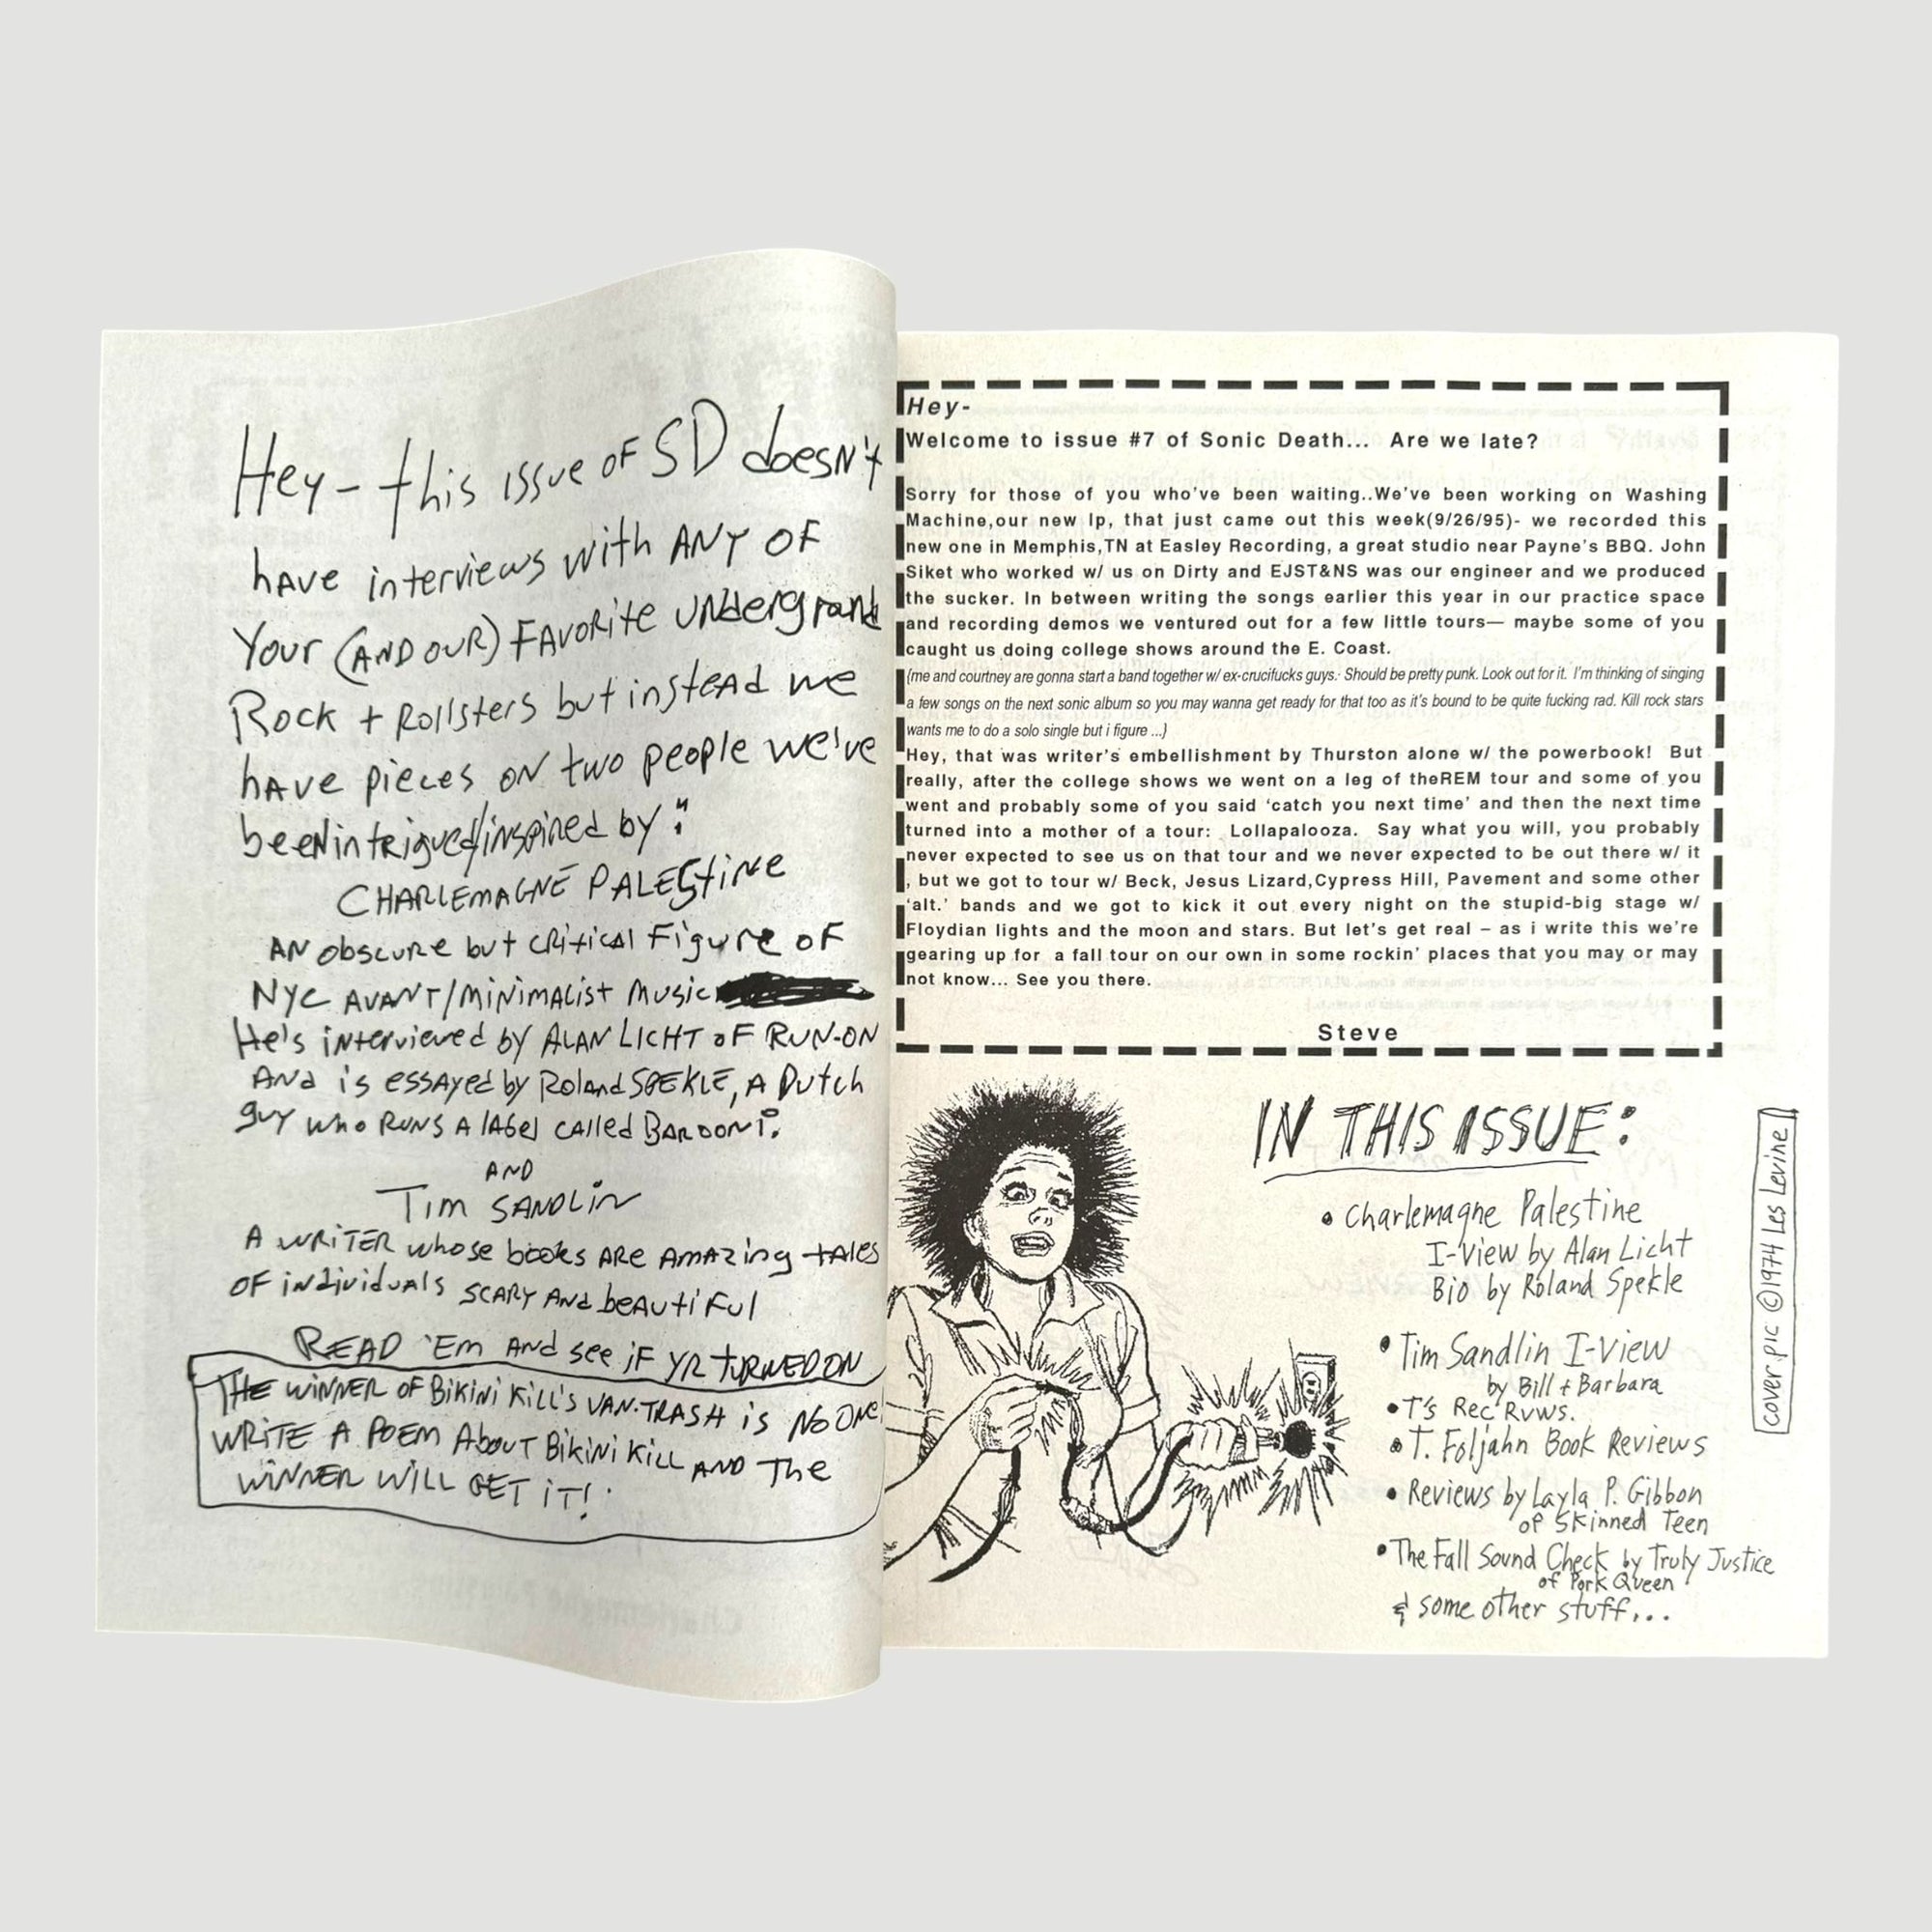 Hey – this issue OF SD doesn't
hAve interviews with ANY OF
Your (AND OUR) FAVORITE UNderground
Rock + Rollsters but instead we
hAve pieces ON two people we've
beeN intrigued/inspired by":
CHARLEMAGNE PALEStine
AN obscure but critical Figure oF
NYC AVANT/MiNiMAList Music
He's interviewed by ALAN LICHT oF RUN-ON
ANd is essAyed by Roland SPEKLE, A Dutch
guy who RUNS A lAbel cAlled BAROONi.
AND
Tim SANDLiN
A WRiTER whose books ARE AMAzing tAles
OF individuals SCARY ANd beAUtiFul
READ 'Em ANd see iF YR tURNED ON
THE WiNNER OF BiKiNi KiLL'S VAN-TRASH iS NO ONE
WRiTE A POEM AbouT BiKiNi KiLL AND The
WiNNER WiLL GET iT!
Hey-
Welcome to issue #7 of Sonic Death... Are we late?
Sorry for those of you who've been waiting..We've been working on Washing
Machine,our new lp, that just came out this week(9/26/95)- we recorded this
new one in Memphis,TN at Easley Recording, a great studio near Payne's BBQ. John
Siket who worked w/ us on Dirty and EJST&NS was our engineer and we produced
the sucker. In between writing the songs earlier this year in our practice space
and recording demos we ventured out for a few little tours— maybe some of you
caught us doing college shows around the E. Coast.
{me and courtney are gonna start a band together w/ ex-crucifucks guys. Should be pretty punk. Look out for it. I'm thinking of singing
a few songs on the next sonic album so you may wanna get ready for that too as it's bound to be quite fucking rad. Kill rock stars
wants me to do a solo single but i figure ...}
Hey, that was writer's embellishment by Thurston alone w/ the powerbook! But
really, after the college shows we went on a leg of theREM tour and some of you
went and probably some of you said 'catch you next time' and then the next time
turned into a mother of a tour: Lollapalooza. Say what you will, you probably
never expected to see us on that tour and we never expected to be out there w/ it
, but we got to tour w/ Beck, Jesus Lizard,Cypress Hill, Pavement and some other
'alt.' bands and we got to kick it out every night on the stupid-big stage w/
Floydian lights and the moon and stars. But let's get real – as i write this we're
gearing up for a fall tour on our own in some rockin' places that you may or may
not know... See you there.
Steve
IN THIS ISSUE:
• Charlemagne Palestine
I-View by Alan Licht
Bio by Roland Spekle
• Tim Sandlin I-View
by Bill + Barbara
• T's Rec Rvws.
• T. Foljahn Book Reviews
• Reviews by Layla P. Gibbon
of Skinned Teen
• The Fall Sound Check by Truly Justice
of Pork Queen
& some other stuff...
cover pic ©1974 Les Levine